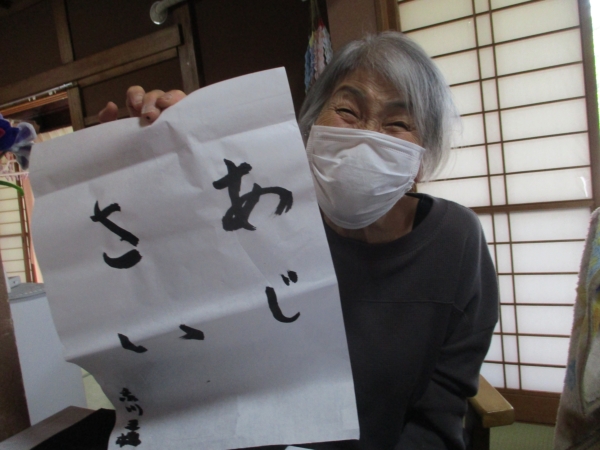 あじ
さい